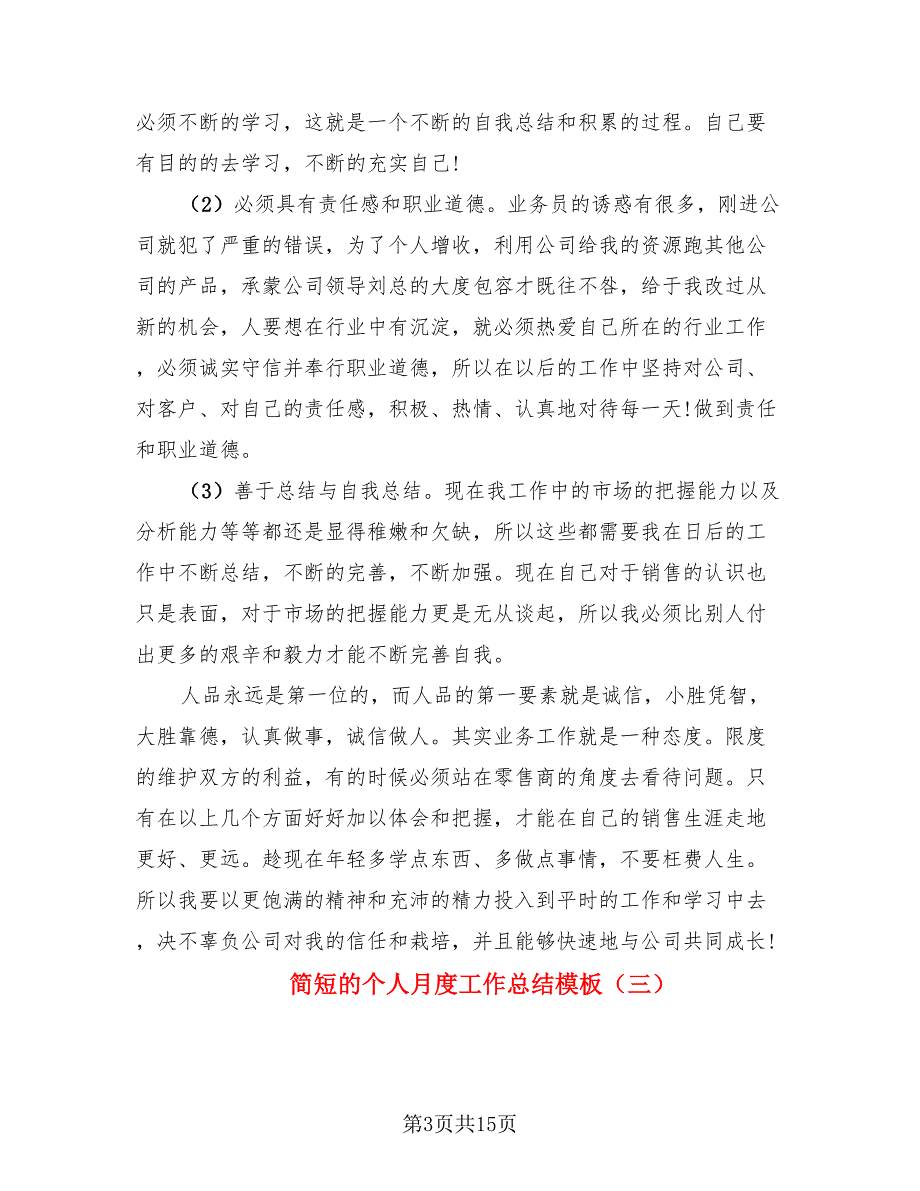 必须不断的学习，这就是一个不断的自我总结和积累的过程。自己要
有目的的去学习，不断的充实自己!
（2）必须具有责任感和职业道德。业务员的诱惑有很多，刚进公
司就犯了严重的错误，为了个人增收，利用公司给我的资源跑其他公
司的产品，承蒙公司领导刘总的大度包容才既往不咎，给于我改过从
新的机会，人要想在行业中有沉淀，就必须热爱自己所在的行业工作
，必须诚实守信并奉行职业道德，所以在以后的工作中坚持对公司、
对客户、对自己的责任感，积极、热情、认真地对待每一天!做到责任
和职业道德。
（3）善于总结与自我总结。现在我工作中的市场的把握能力以及
分析能力等等都还是显得稚嫩和欠缺，所以这些都需要我在日后的工
作中不断总结，不断的完善，不断加强。现在自己对于销售的认识也
只是表面，对于市场的把握能力更是无从谈起，所以我必须比别人付
出更多的艰辛和毅力才能不断完善自我。
人品永远是第一位的，而人品的第一要素就是诚信，小胜凭智，
大胜靠德，认真做事，诚信做人。其实业务工作就是一种态度。限度
的维护双方的利益，有的时候必须站在零售商的角度去看待问题。只
有在以上几个方面好好加以体会和把握，才能在自己的销售生涯走地
更好、更远。趁现在年轻多学点东西、多做点事情，不要枉费人生。
所以我要以更饱满的精神和充沛的精力投入到平时的工作和学习中去
，决不辜负公司对我的信任和栽培，并且能够快速地与公司共同成长!
简短的个人月度工作总结模板（三）
第3页共15页